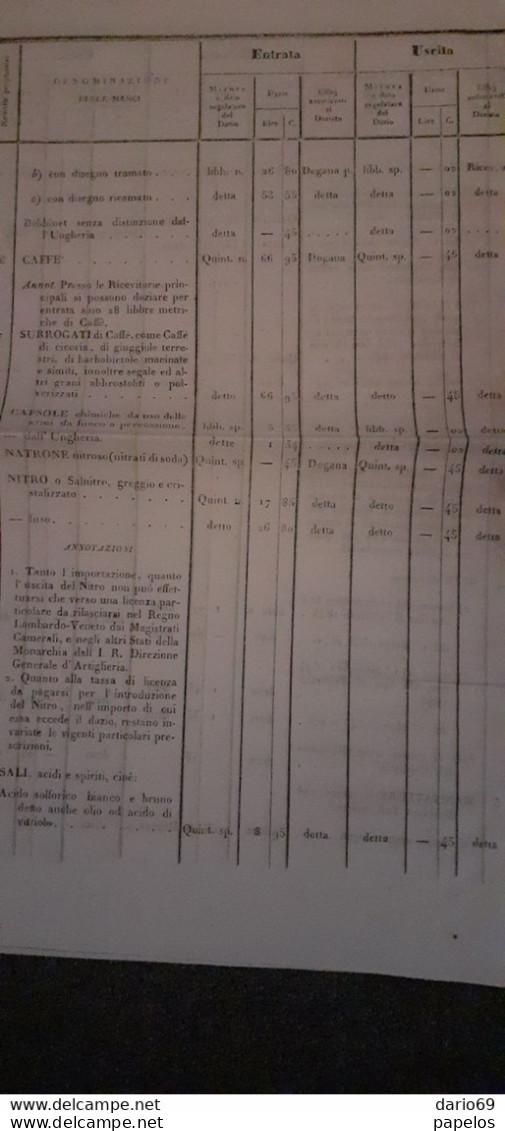 Entrata Uscita
DENOMINAZIONE
DELLE MERCI
Misura
e dato
regolatore
del
Dazio
Dazio
Lire C.
Uffizj
autorizzati
al
Daziato
Misura
e dato
regolatore
del
Dazio
Dazio
Lire C.
b) con disegno tramato . . . . libb. n. 26 80 Dogana p. libb. sp. — 02 Ricev.
c) con disegno ricamato . . . detta 53 55 detta detta — 02 detta
Bobbinet senza distinzione dal-
l'Ungheria . . . . . . . detta — 45 . . . . . detta — 02 . . . . .
CAFFE' . . . . . . . . . Quint. n. 66 95 Dogana Quint. sp. — 45 detta
Annot. Presso le Ricevitorie prin-
cipali si possono daziare per
entrata sino 28 libbre metri-
che di Caffè.
SURROGATI di Caffè, come Caffè
di cicoria, di giuggiole terre-
stri, di barbabietole macinate
e simili, inoltre segale ed al-
tri grani abbrostoliti o pol-
verizzati . . . . . . . detto 66 95 detta detto — 45 detta
CAPSOLE chimiche da uso delle
armi da fuoco a percussione. libb. sp. detta libb. sp. — 02 detta
— dall'Ungheria. dette 1 34 . . . . . detta — 02 detta
NATRONE nitroso (nitrati di soda) Quint. sp. — 45 Dogana Quint. sp. — 45 detta
NITRO o Salnitro, greggio e cri-
stalizzato . . . . . . . Quint. n. 17 85 detta detto — 45 detta
— fuso. . . . . . . . . detto 26 80 detta detto — 45 detta
ANNOTAZIONI
1. Tanto l'importazione, quanto
l'uscita del Nitro non può effet-
tuarsi che verso una licenza par-
ticolare da rilasciarsi nel Regno
Lombardo-Veneto dai Magistrati
Camerali, e negli altri Stati della
Monarchia dall'I. R. Direzione
Generale d'Artiglieria.
2. Quanto alla tassa di licenza
da pagarsi per l'introduzione
del Nitro, nell'importo di cui
essa eccede il dazio, restano in-
variate le vigenti particolari pre-
scrizioni.
SALI, acidi e spiriti, cioè:
Acido solforico bianco e bruno
detto anche olio od acido di
vitriolo. . . . . . . . Quint. sp. 8 95 detta detto — 45 detta
dario69
papelos